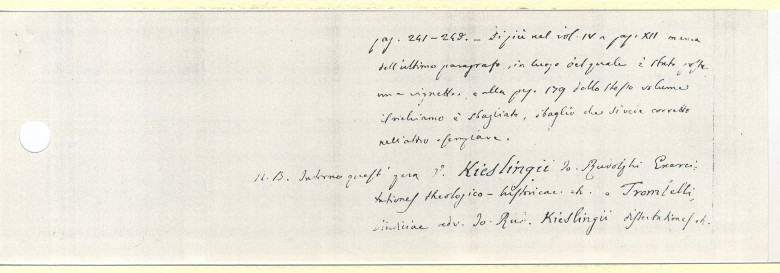 pag. 241-248. - Di più nel vol. IV a pag. XII manca
dell'ultimo paragrafo, in luogo del quale è stato posto
una vignetta, e alla pag. 179 dello stesso volume
il richiamo è sbagliato, sbaglio che si vede corretto
nell'altro esemplare.
N.B. Intorno quest' opera v. Kieslingii Jo. Rudolphi Exerci-
tationes theologico-historicae etc. e Trombelli
Vindiciae adv. Jo. Rud. Kieslingii dissertationes etc.